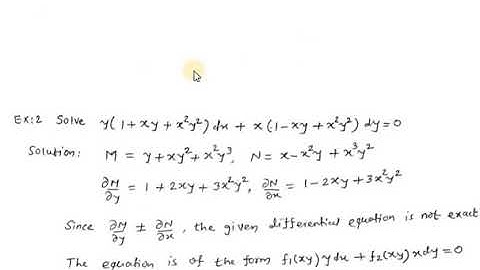 Ex:2 Solve y(1+xy+x²y²)dx + x(1-xy+x²y²)dy=0
Solution: M = y+xy²+x²y³, N= x-x²y+x³y²
∂M/∂y = 1+2xy+3x²y², ∂N/∂x = 1-2xy+3x²y²
Since ∂M/∂y ± ∂N/∂x, the given differential equation is not exact
The equation is of the form f₁(xy)ydx+f₂(xy)xdy=0